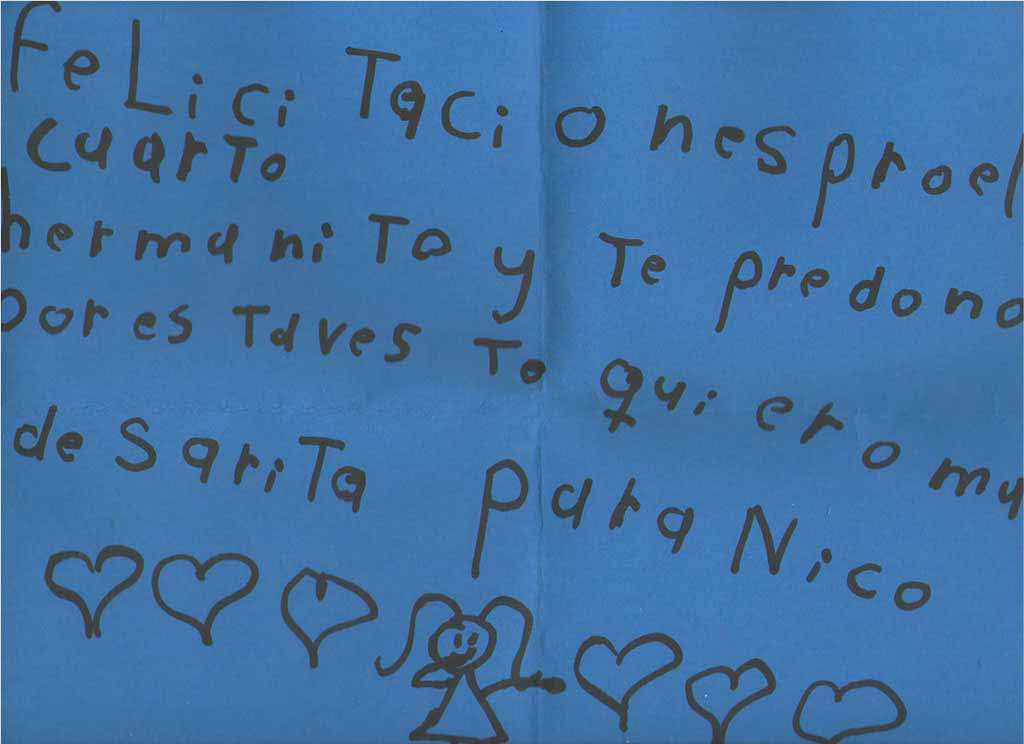 FeLici Taciones proel
cuarTo
hermaniTo y Te predono
por es Taves To quiero mu
de SariTa para Nico